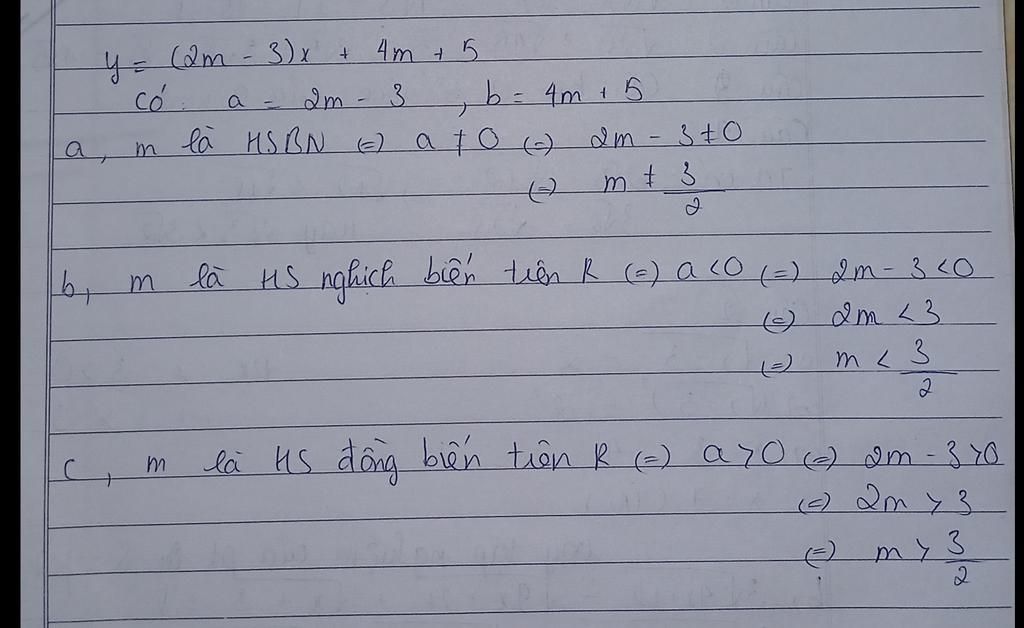 y = (2m - 3)x + 4m + 5
Có: a = 2m - 3 , b = 4m + 5
a, m là HSBN (=) a ≠ 0 (=) 2m - 3 ≠ 0
(=) m ≠ 3/2
b, m là HS nghịch biến trên R (=) a < 0 (=) 2m - 3 < 0
(=) 2m < 3
(=) m < 3/2
c, m là HS đồng biến trên R (=) a > 0 (=) 2m - 3 > 0
(=) 2m > 3
(=) m > 3/2